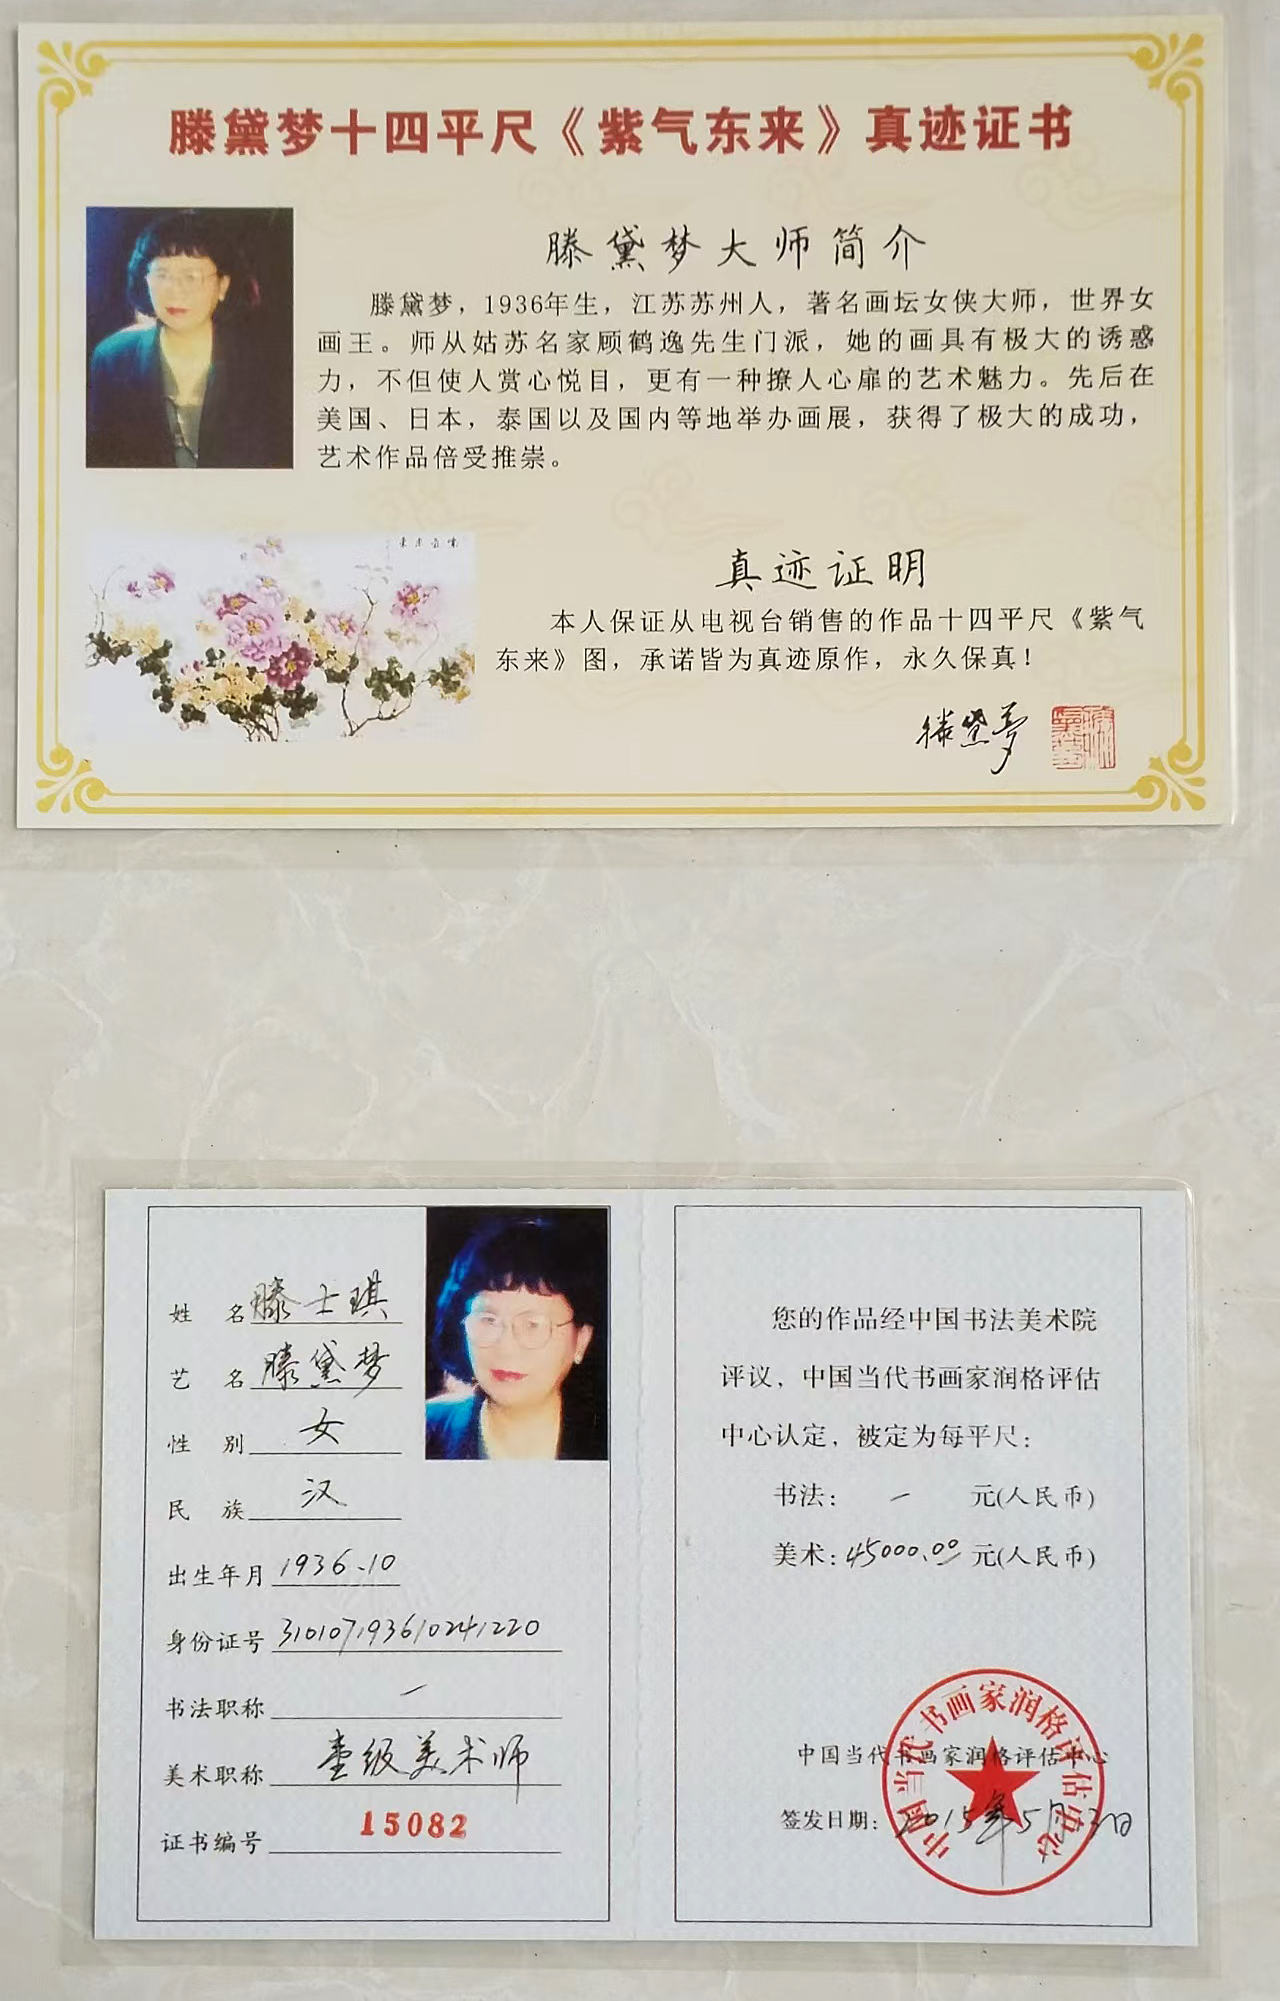 滕黛梦十四平尺《紫气东来》真迹证书
滕黛梦大师简介
滕黛梦，1936年生，江苏苏州人，著名画坛女侠大师，世界女
画王。师从姑苏名家顾鹤逸先生门派，她的画具有极大的诱惑
力，不但使人赏心悦目，更有一种撩人心扉的艺术魅力。先后在
美国、日本，泰国以及国内等地举办画展，获得了极大的成功，
艺术作品倍受推崇。
真迹证明
本人保证从电视台销售的作品十四平尺《紫气
东来》图，承诺皆为真迹原作，永久保真！
滕黛梦
姓 名 滕士琪
艺 名 滕黛梦
性 别 女
民 族 汉
出生年月 1936.10
身份证号 310107193610241220
书法职称 一
美术职称 壹级美术师
证书编号 15082
您的作品经中国书法美术院
评议，中国当代书画家润格评估
中心认定，被定为每平尺：
书法： 一 元(人民币)
美术：45000.00 元(人民币)
中国当代书画家润格评估中心
签发日期：2015年5月3日
中国当代书画家润格评估中心